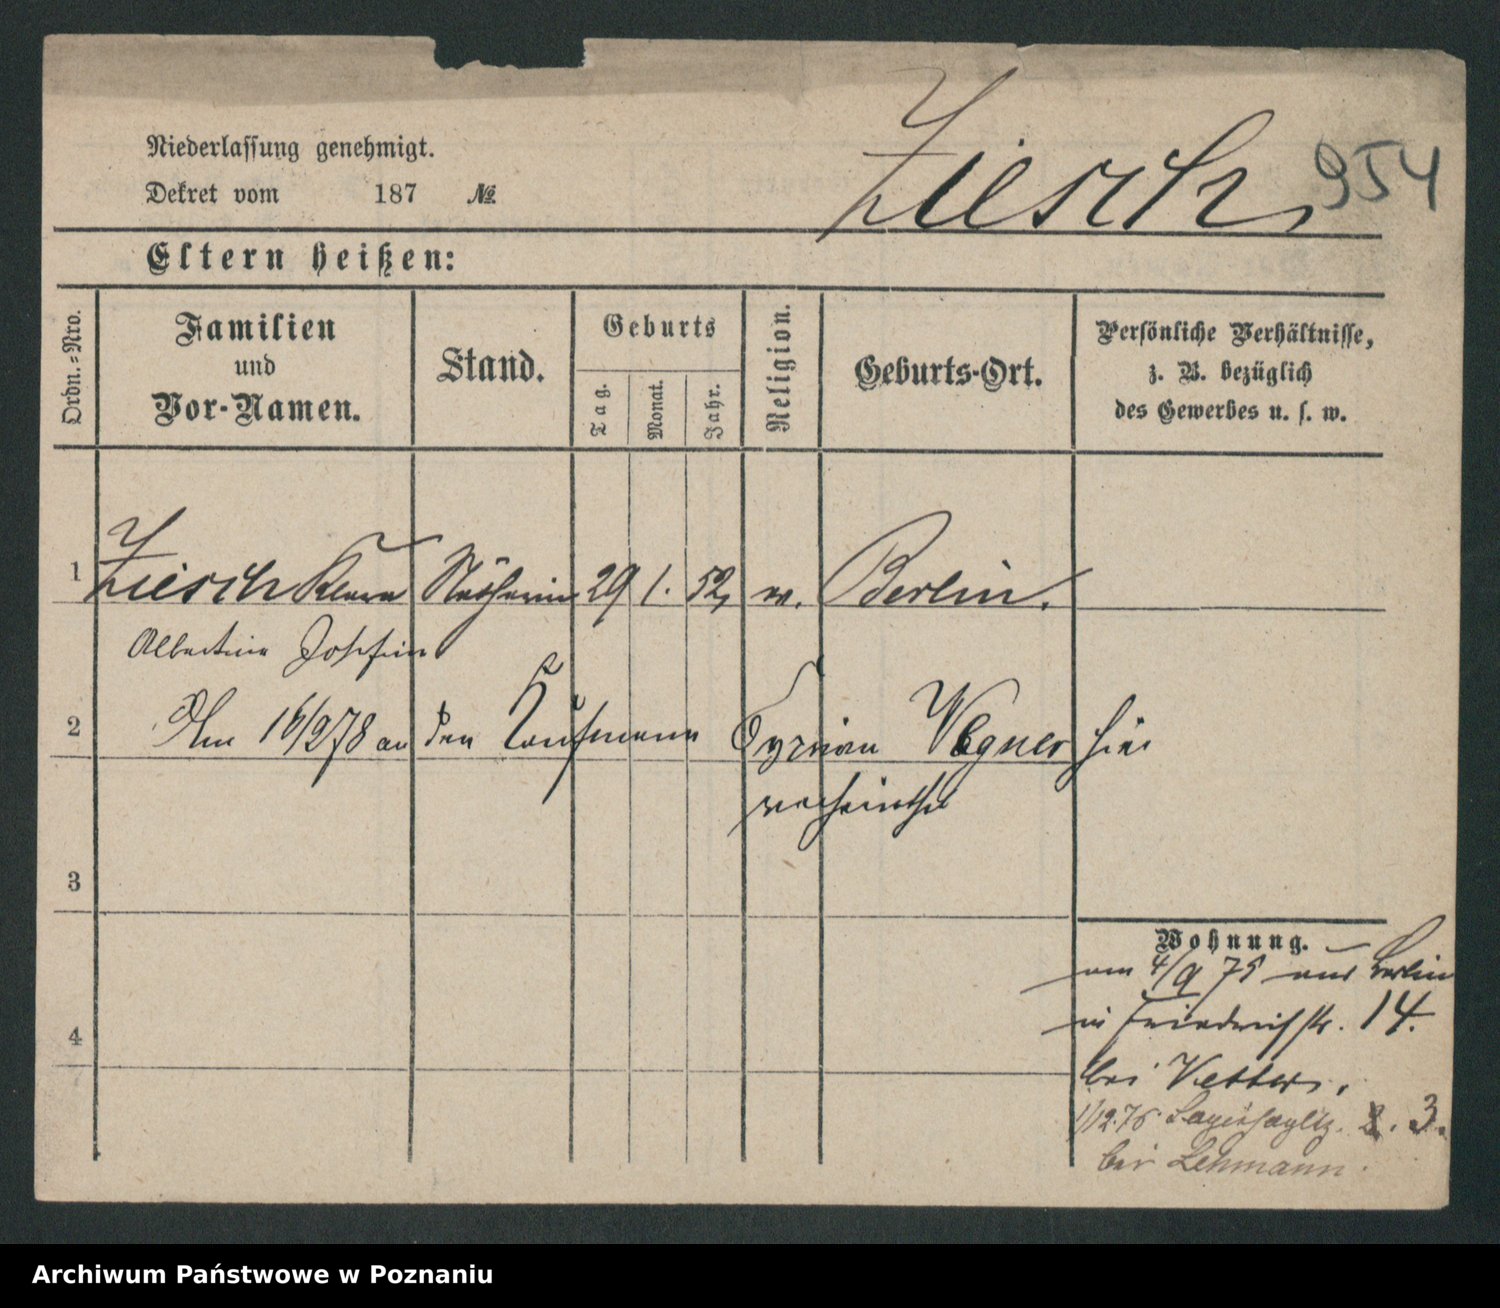 Niederlassung genehmigt.
Dekret vom 187 №
Ziesch, 954
Eltern heißen:
Ordn.=Nro.
Familien und Vor-Namen.
Stand.
Geburts
Tag.
Monat.
Jahr.
Religion.
Geburts-Ort.
Persönliche Verhältnisse,
z. B. bezüglich
des Gewerbes u. s. w.
1 Ziesch Klara Nätherin 29 1. 52, Berlin.
Albertine Josefine
2 Am 16/2 78 an den Kaufmann Wegner hier
verheirathet
3
Wohnung.
am 4/9 75 aus Berlin
in Friedrichstr. 14.
4
bei Vetter.
1/12.75. 3.
bei Lehmann.
Archiwum Państwowe w Poznaniu